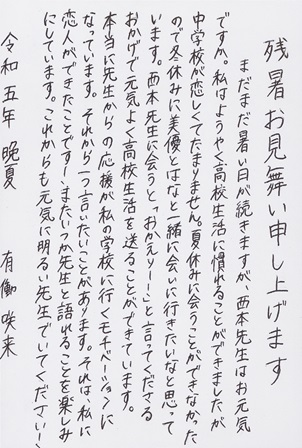 残暑お見舞い申し上げます
まだまだ暑い日が続きますが、西本先生はお元気
ですか。私はようやく高校生活に慣れることができましたが、
中学校が恋しくてたまりません。夏休みに会うことができなかった
ので冬休みに美優とはなと一緒に会いに行きたいなと思って
います。西本先生に会うと「おかえりー！」と言ってくださる
おかげで元気よく高校生活を送ることができています。
本当に先生からの応援が私の学校に行くモチベーションに
なっています。それから一つ言いたいことがあります。それは、私に
恋人ができたことです！またいつか先生と語れることを楽しみ
にしています。これからも元気に明るい先生でいてください！
令和五年 晩夏 有働 咲来